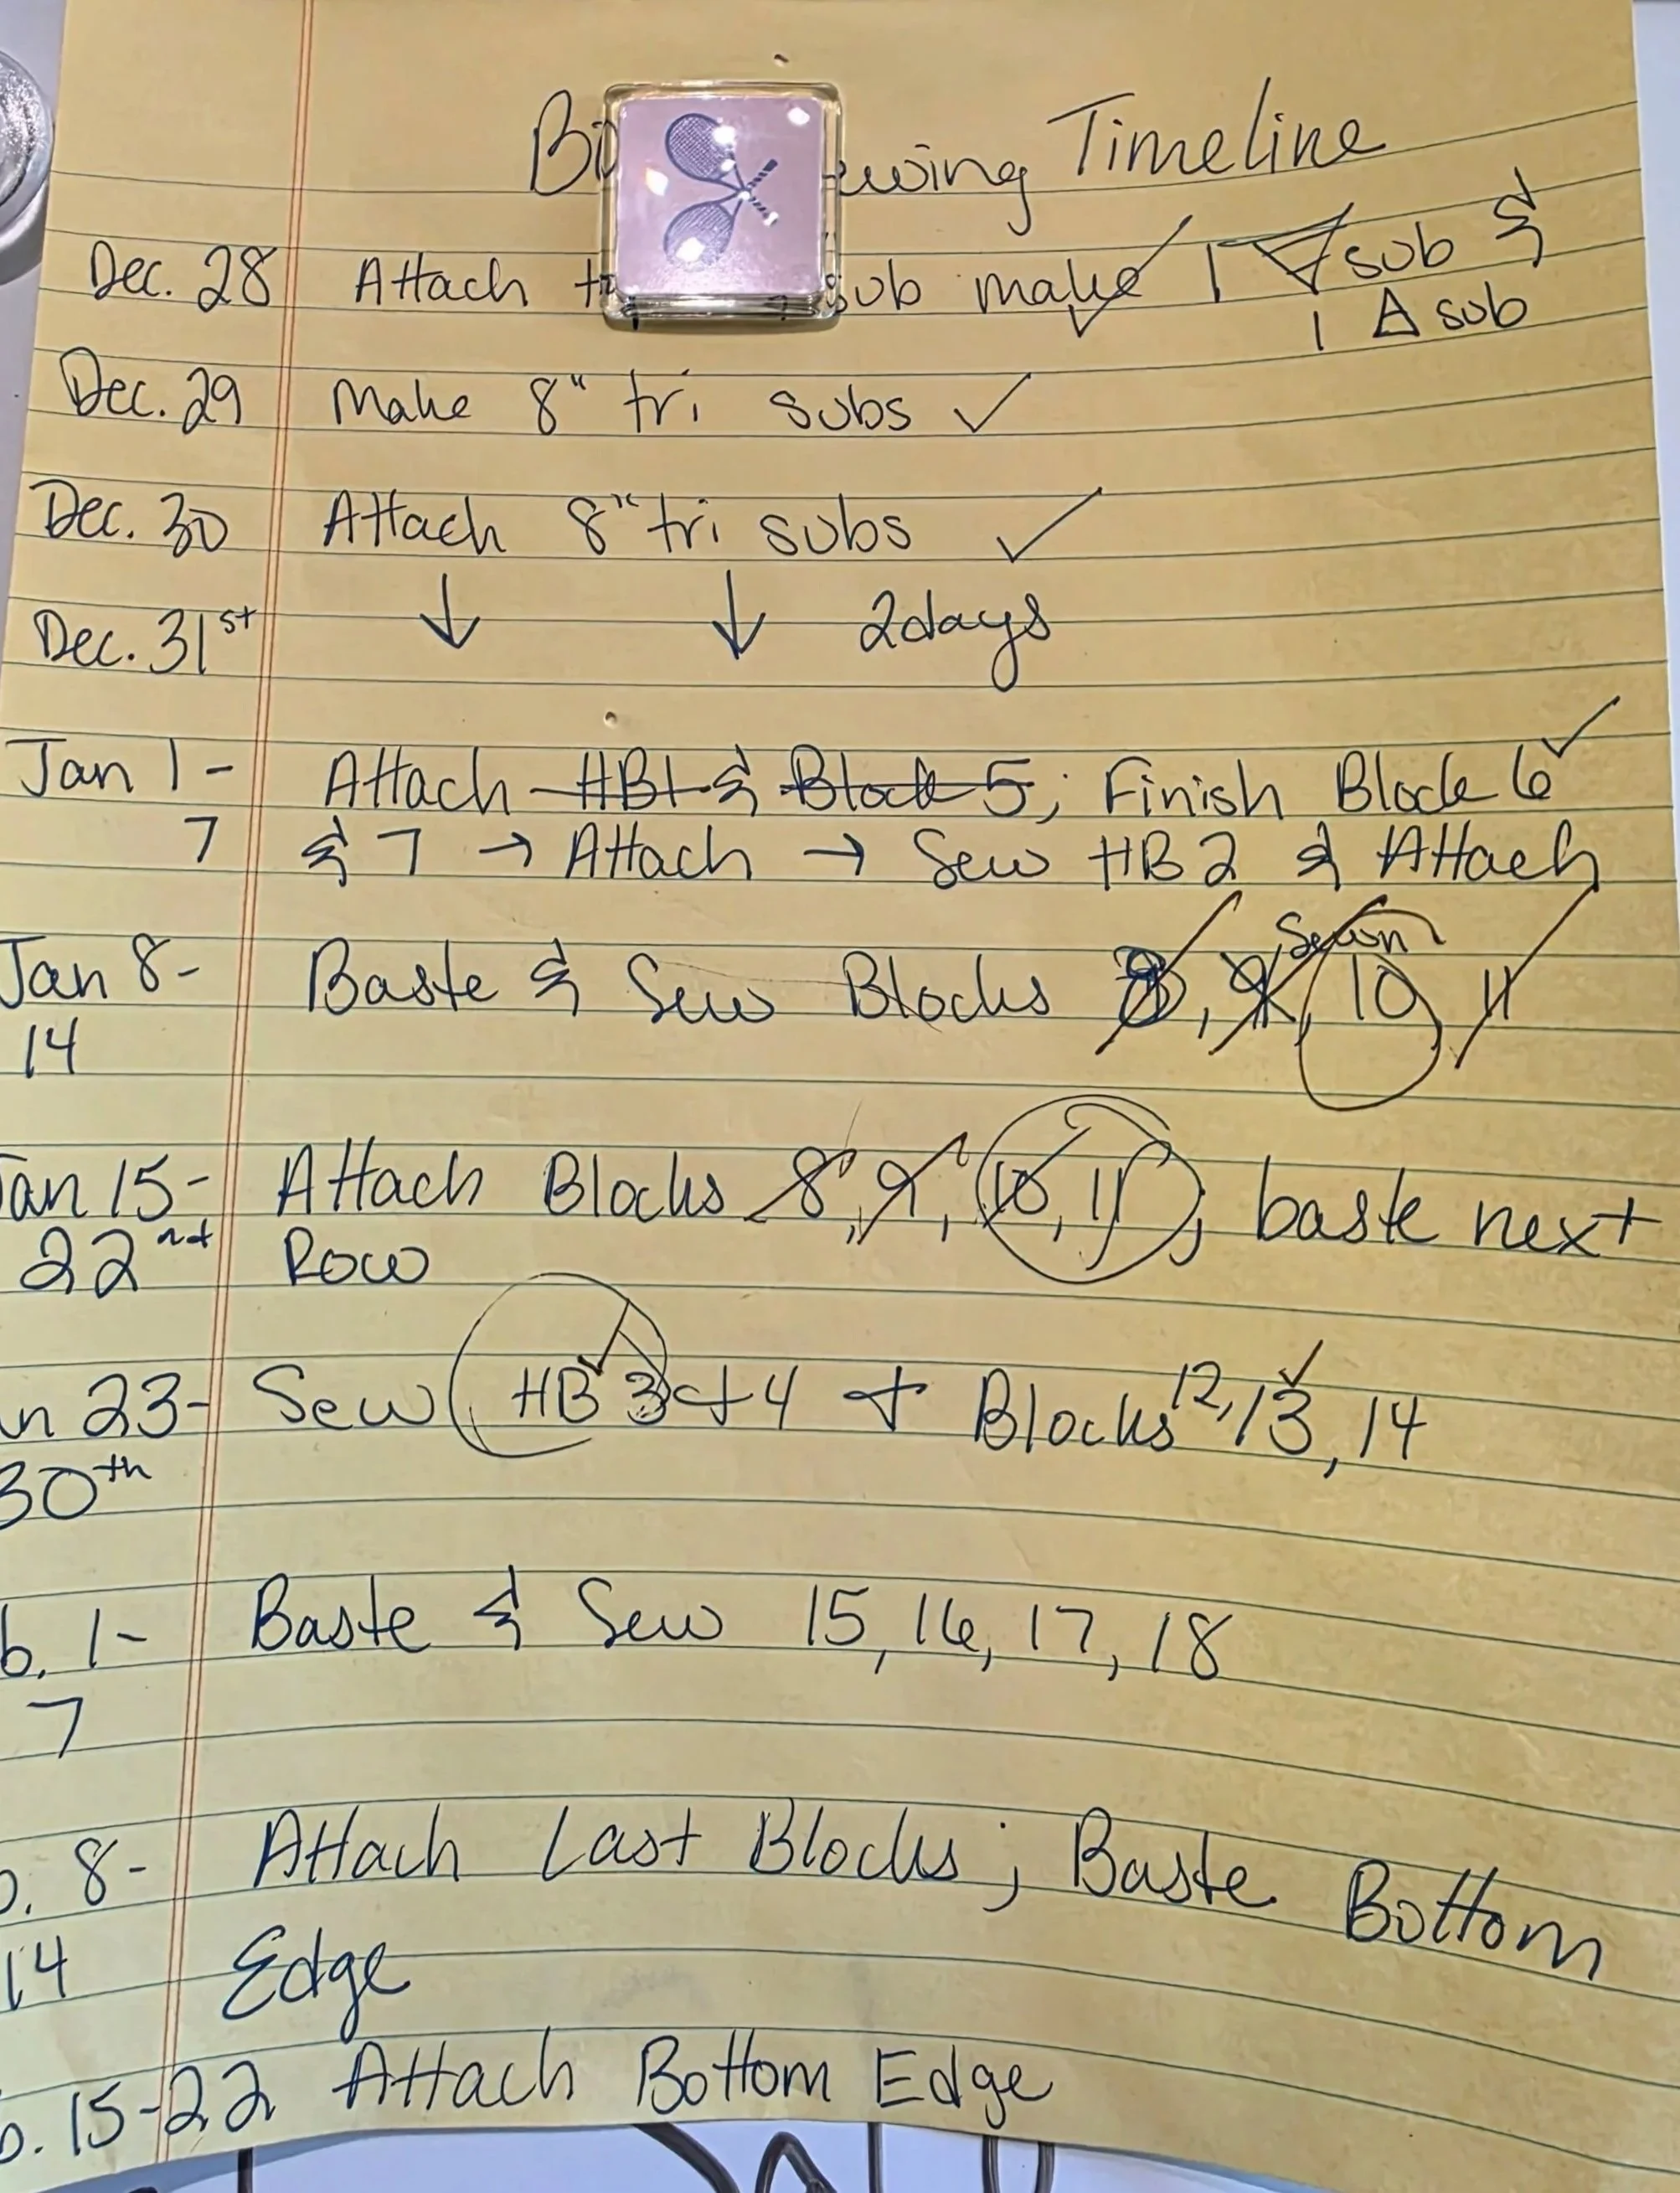 Timeline
Dec. 28 Attach sub make 1 sub &
1 sub
Dec. 29 Make 8" tri subs ✓
Dec. 30 Attach 8" tri subs ✓
Dec. 31st ↓ ↓ 2days
Jan 1- Attach HB1 & Block 5; Finish Block 6 ✓
7 & 7 → Attach → Sew HB2 & Attach
Sewn
Jan 8- Baste & Sew Blocks 8, 9, 10, 11
14
an 15- Attach Blocks 8, 9, 10, 11; baste next
22nd Row
n 23- Sew HB 3 + 4 + Blocks 12, 13, 14
30th
b. 1- Baste & Sew 15, 16, 17, 18
7
b. 8- Attach Last Blocks; Baste Bottom
14 Edge
b. 15-22 Attach Bottom Edge